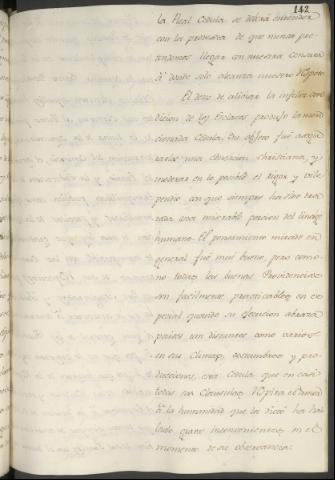 142
la Real Cedula se deberá entender
con la protesta de que nunca pre-
tendemos llegar con nuestra censura
á donde solo alcanza nuestro respeto
El deseo de aliviar la infeliz con
dicion de los Esclavos produjo la men
cionada Cedula. Su objeto fué asegu
rarles una educacion christiana, y
moderar en lo posible el rigor y vili
pendio con que siempre ha sido tra
tada una miserable porcion del linage
humano. El pensamiento mirado en
general fué muy bueno, pero como
no todas las buenas Providencias
son facilmente practicables en es
pecial quando su egecucion abraza
paises tan distantes como varios
en su Clima, costumbres y pro
ducciones, esta Cedula que en casi
todas sus Clausulas respira
la humanidad que la dictó ha
graves inconvenientes en el
momento de su observancia.